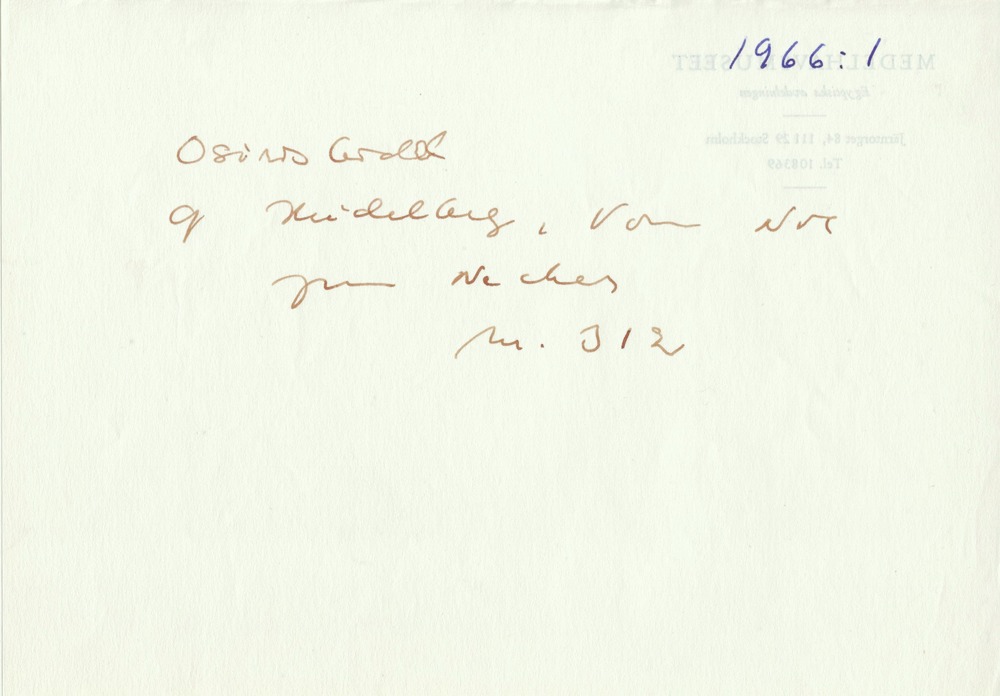 1966:1
MEDELHAVSMUSEET
Egyptiska avdelningen
Järntorget 84, 111 29 Stockholm
Tel. 108369
Osiris
cf Heidelberg, Vom Nil
zum Neckar
Nr. 312